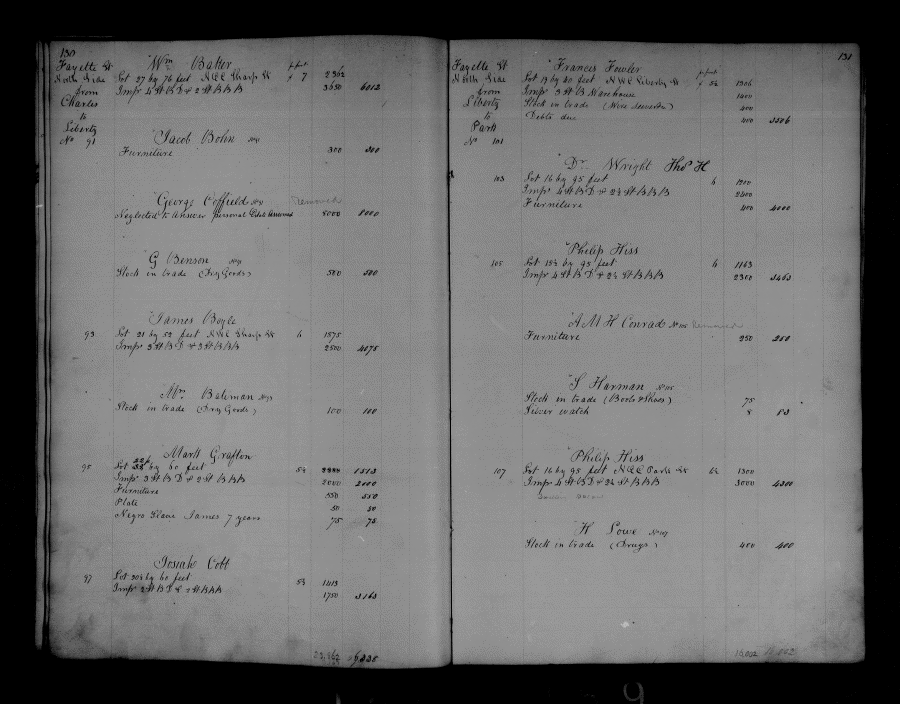 130
Fayette St
North Side
from
Charles
to
Liberty
No 91
Wm Baker
p foot
Lot 27 by 76 feet N.E.C Sharp St 7 2362
Impr 4 St B D & 2 St B BB 3650 6012
Jacob Bohn
Furniture 300 300
George Coffield Removed
Neglected to Answer personal 8000 8000
G Benson
Stock in trade (Dry Goods) 500 500
James Boyle
93 Lot 21 by 52 feet N.W.C Sharp St 6 1575
Impr 3 St B D & 3 St B BB 2500 4075
Mrs Bateman No 93
Stock in trade (Dry Goods) 100 100
Mark Grafton
95 Lot by 60 feet 1513
Impr 3 St B D & 2 St B BB 2000 2000
Furniture 550 550
Plate 50 50
Negro Slave James 7 years 75 75
Josiah Cobb
97 Lot by 60 feet 1413
Impr 2 St B D & 2 St B BB 1750 3163
131
Fayette St
North Side
from
Liberty
to
Park
No 101
Frances Fowler
p foot
Lot 19 by 80 feet N.W.C Liberty St 1306
Impr 3 St B Warehouse 1400
Stock in trade 400
Debts due 400 3506
Dr Wright Thos H
103 Lot 16 by 95 feet 6 1200
Impr 4 St B D & 2½ St B BB 2400
Furniture 400 4000
Philip Hiss
105 Lot 15½ by 95 feet 6 1163
Impr 4 St B D & 2½ St B BB 2300 3463
A M H Conrad No 105 Removed
Furniture 250 250
S Harman No 105
Stock in trade (Boots & Shoes) 75
Silver watch 8 83
Philip Hiss
107 Lot 16 by 95 feet N.E.C Park St 1300
Impr 4 St B D & 2½ St B BB 3000 4300
H Lowe No 107
Stock in trade (Drugs) 400 400